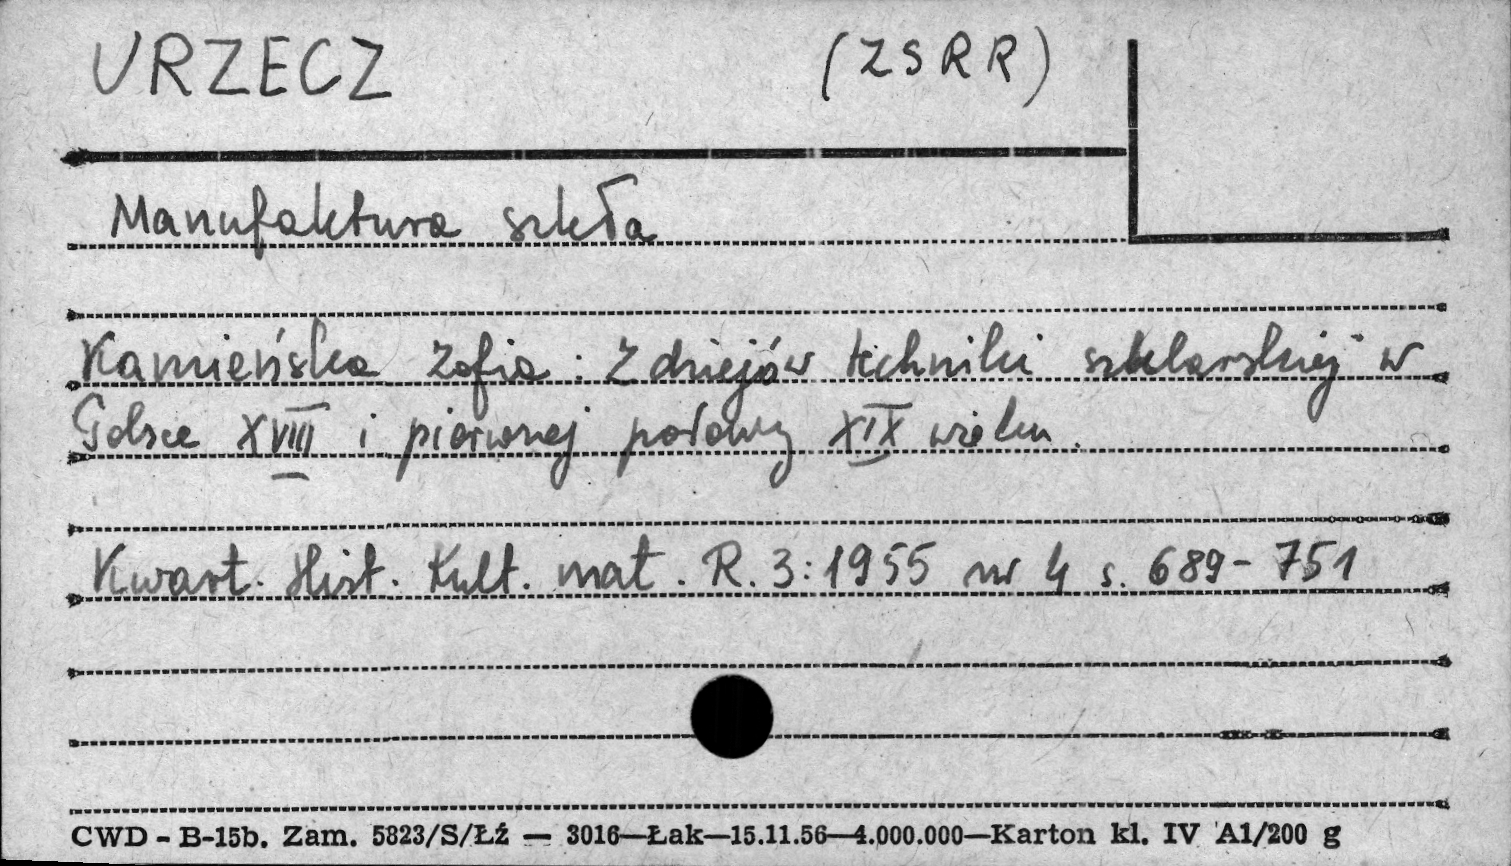 URZECZ (ZSRR)
Manufaktura szkła
Kamieńska Zofia: Z dziejów techniki szklarskiej w
Polsce XVIII i pierwszej połowy XIX wieku.
Kwart. Hist. Kult. mat. R. 3:1955 nr 4 s. 689-751
CWD - B-15b. Zam. 5823/S/Łź — 3016—Łak—15.11.56—4.000.000—Karton kl. IV A1/200 g